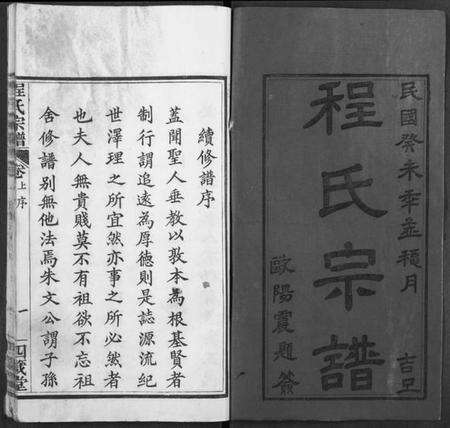 民國癸未年孟穐月 吉旦
程氏宗譜
歐陽震題簽
續修譜序
蓋聞聖人垂教以敦本為根基賢者
制行謂追遠為厚德則是誌源流紀
世澤理之所宜然亦事之所必然者
也夫人無貴賤莫不有祖欲不忘祖
舍修譜別無他法焉朱文公謂子孫
程氏宗譜
卷上序
一
四箴堂